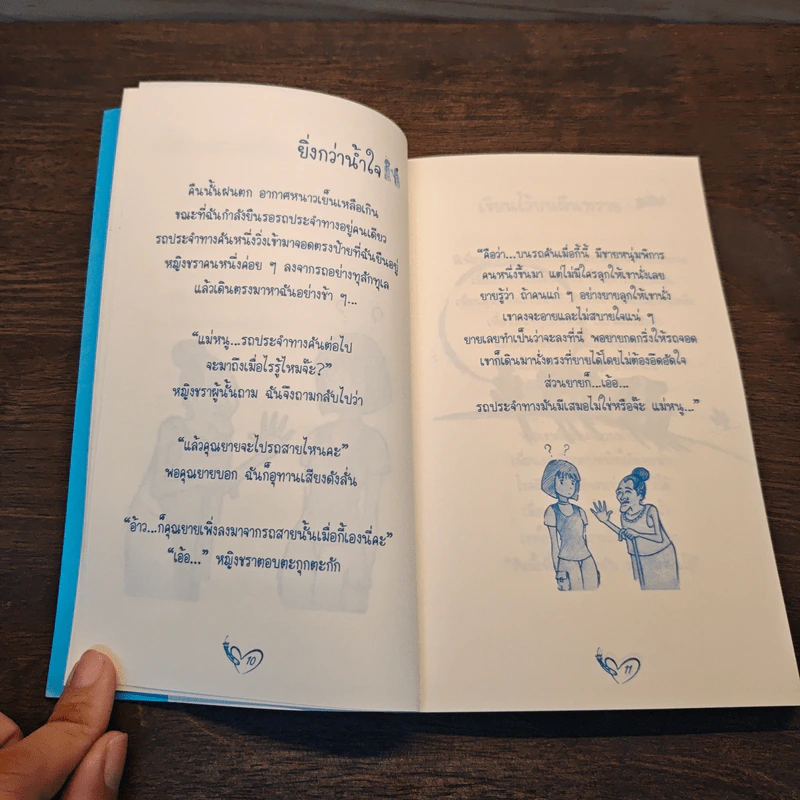 ยิ่งกว่าน้ำใจ
คืนนั้นฝนตก อากาศหนาวเย็นเหลือเกิน
ขณะที่ฉันกำลังยืนรอรถประจำทางอยู่คนเดียว
รถประจำทางคันหนึ่งวิ่งเข้ามาจอดตรงป้ายที่ฉันยืนอยู่
หญิงชราคนหนึ่งค่อย ๆ ลงจากรถอย่างทุลักทุเล
แล้วเดินตรงมาหาฉันอย่างช้า ๆ...
“แม่หนู...รถประจำทางคันต่อไป
จะมาถึงเมื่อไรรู้ไหมจ๊ะ?”
หญิงชราผู้นั้นถาม ฉันจึงถามกลับไปว่า
“แล้วคุณยายจะไปรถสายไหนคะ”
พอคุณยายบอก ฉันก็อุทานเสียงดังลั่น
“อ้าว...ก็คุณยายเพิ่งลงมาจากรถสายนั้นเมื่อกี้เองนี่คะ”
“เอ้อ...” หญิงชราตอบตะกุกตะกัก
10
“คือว่า...บนรถคันเมื่อกี้นี้ มีชายหนุ่มพิการ
คนหนึ่งขึ้นมา แต่ไม่มีใครลุกให้เขานั่งเลย
ยายรู้ว่า ถ้าคนแก่ ๆ อย่างยายลุกให้เขานั่ง
เขาคงจะอายและไม่สบายใจแน่ ๆ
ยายเลยทำเป็นว่าจะลงที่นี่ พอยายกดกริ่งให้รถจอด
เขาก็เดินมานั่งตรงที่ยายได้โดยไม่ต้องอึดอัดใจ
ส่วนยายก็...เอ้อ...
รถประจำทางมันมีเสมอไม่ใช่หรือจ๊ะ แม่หนู...”
? ?
11